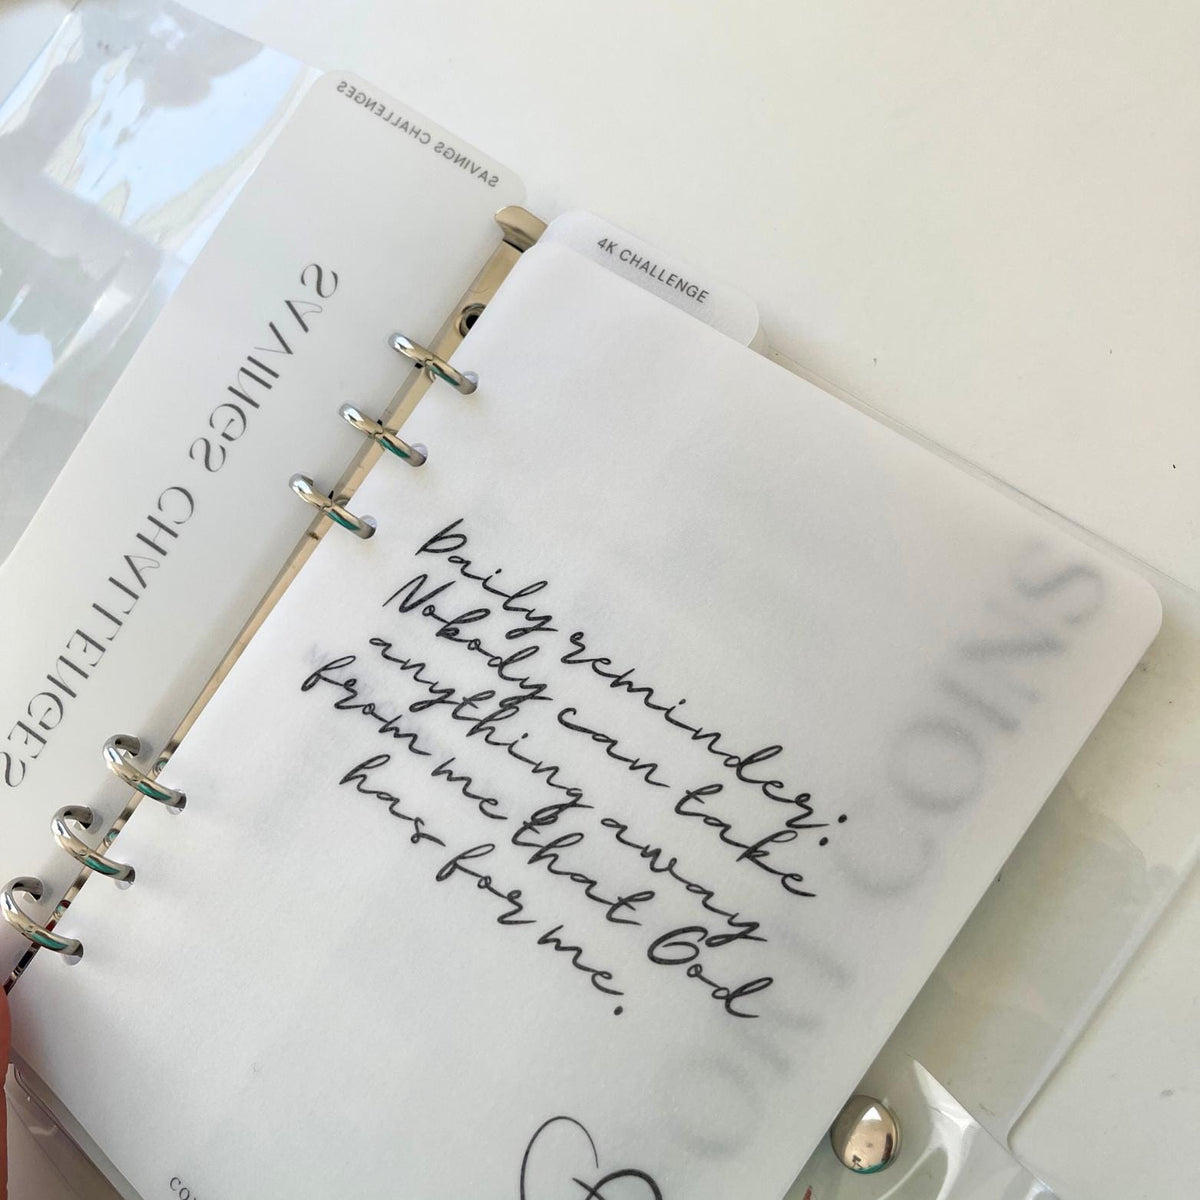 SAVINGS CHALLENGES
SAVINGS CHALLENGES
4K CHALLENGE
Daily reminder:
Nobody can take
anything away
from me that God
has for me.
COINS